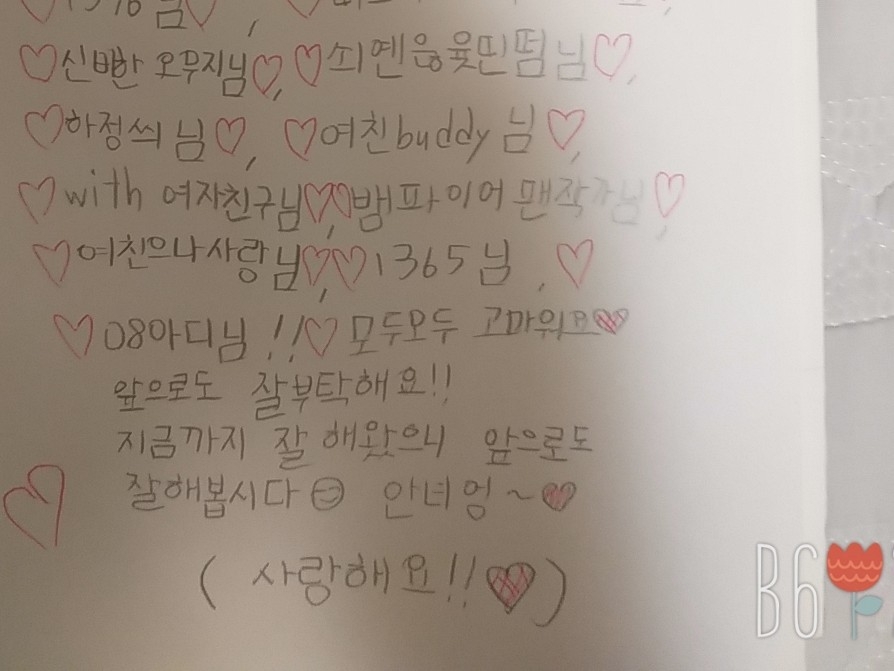 ♡신빤 오무지님♡, ♡쇠옌읂윷띤떰님♡,
♡하정씌 님♡, ♡여친buddy 님♡,
♡with 여자친구님♡, ♡뱀파이어 맨작가님♡,
♡여친으나사랑님♡, ♡1365님, ♡
♡08아디님!!♡ 모두모두 고마워요♡
앞으로도 잘부탁해요!!
지금까지 잘 해왔으니 앞으로도
잘해봅시다 안녀엉~♡
( 사랑해요!!♡)
B6